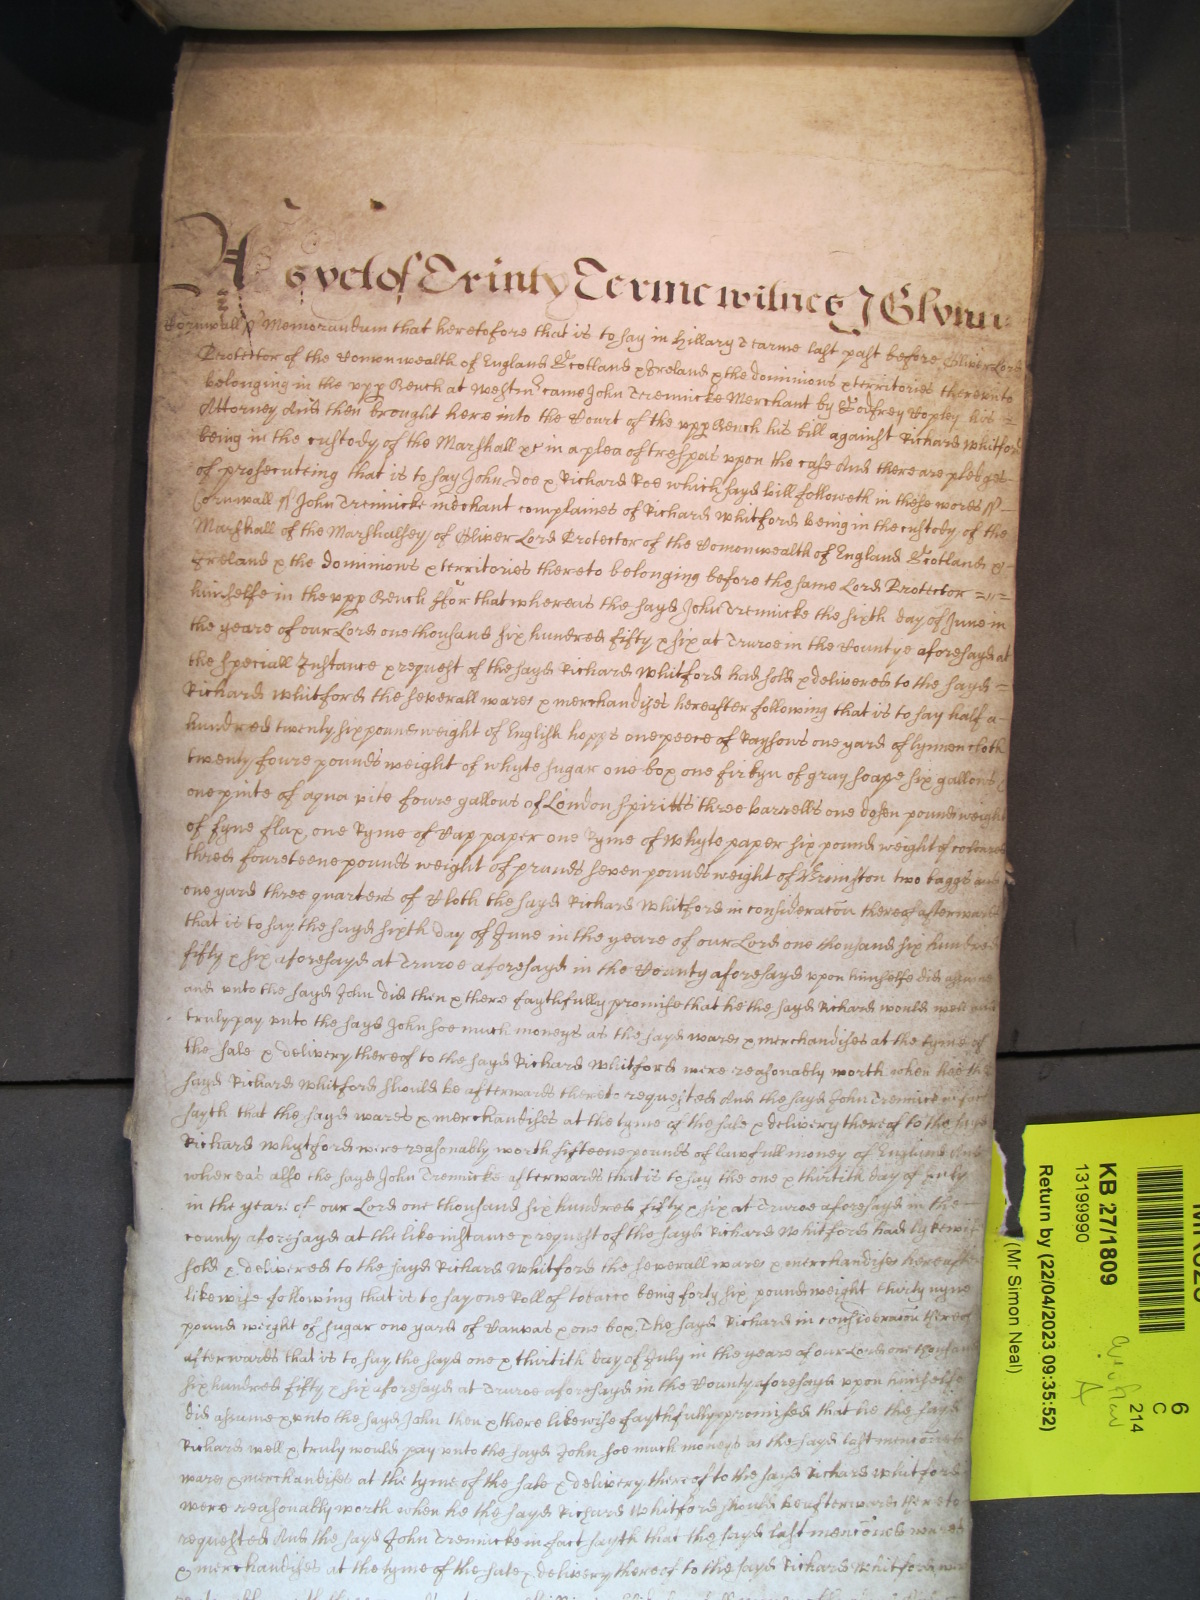 As yet of Trinity Terme witnes J Glynn
Cornwall ss Memorandum that heretofore that is to say in Hillary Tearme last past before Oliver Lord
Protector of the Comonwealth of England Scotland & Ireland & the dominions & territories thereunto
belonging in the upp Bench at Westmr came John Tremicke Merchant by Godfrey his =
Attorney And then brought here into the Court of the upp Bench his bill against Richard Whitford
being in the custody of the Marshall &c in a plea of trespas upon the case And there are pledges
of prosecuteing that is to say John Doe & Richard Roe which sayd bill followeth in these words ss
Cornwall ss John Tremicke merchant complaines of Richard Whitford being in the custody of the
Marshall of the Marshalsey of Oliver Lord Protector of the Comonwealth of England Scotland &
Ireland & the dominions & territories thereto belonging before the same Lord Protector =
himselfe in the upp Bench ffor that whereas the sayd John Tremicke the sixth day of June in
the yeare of our Lord one thousand six hundred fifty & six at Truroe in the Countye aforesayd at
the speciall Instance & request of the sayd Richard Whitford had sold & delivered to the sayd =
Richard Whitford the severall wares & merchandizes hereafter following that is to say half a
hundred twenty six pound weight of English hopps one peece of Raysons one yard of lynnen cloth
twenty foure pounds weight of whyte sugar one box one firkyn of gray soape six gallons &
one pinte of aqua vite foure gallons of London spiritts three barrells one dozen pound weight
of fyne flax, one Ryme of Cap paper one Ryme of whyte paper six pound weight of coloured
thred foureteene pounds weight of pruans seven pounds weight of Brimston two baggs and
one yard three quarters of Cloth the sayd Richard Whitford in consideracon thereof afterwards
that is to say the sayd sixth day of June in the yeare of our Lord one thousand six hundred
fifty & six aforesayd at Truroe aforesayd in the County aforesayd upon himselfe did assume
and unto the sayd John did then & there faythfully promise that he the sayd Richard would well and
truly pay unto the sayd John soe much moneys as the sayd wares & merchandises at the tyme of
the sale & delivery thereof to the sayd Richard Whitford were reasonably worth when hee the
sayd Richard Whitford should be afterwards thereto requested And the sayd John Tremicke in fact
sayth that the sayd wares & merchandises at the tyme of the sale & delivery thereof to the sayd
Richard Whytford were reasonably worth fifteene pounds of lawfull money of England And
whereas also the sayd John Tremicke afterwards that is to say the one & thirtith day of July
in the yeare of our Lord one thousand six hundred fifty & six at Truroe aforesayd in the
county aforesayd at the like instance & request of the sayd Richard Whitford had lykewise
sold & delivered to the sayd Richard Whitford the severall wares & merchandises hereafter
likewise following that is to say one Roll of tobacco being forty six pound weight thirty nyne
pound weight of sugar one yard of Canvas & one box, The sayd Richard in consideracon thereof
afterwards that is to say the sayd one & thirtith day of July in the yeare of our Lord one thousand
six hundred fifty & six aforesayd at Truroe aforesayd in the County aforesayd upon himselfe
did assume & unto the sayd John then & there likewise faythfully promised that he the sayd
Richard well & truly would pay unto the sayd John soe much moneys as the sayd last menconed
wares & merchandises at the tyme of the sale & delivery thereof to the sayd Richard Whitford
were reasonably worth when he the sayd Richard Whitford should be afterwards thereto
requested And the sayd John Tremicke in fact sayth that the sayd last menconed wares
& merchandises at the tyme of the sale & delivery thereof to the sayd Richard Whitford
KB 27/1809
13199990
Return by (22/04/2023 09:35:52)
(Mr Simon Neal)
6
C
214
A